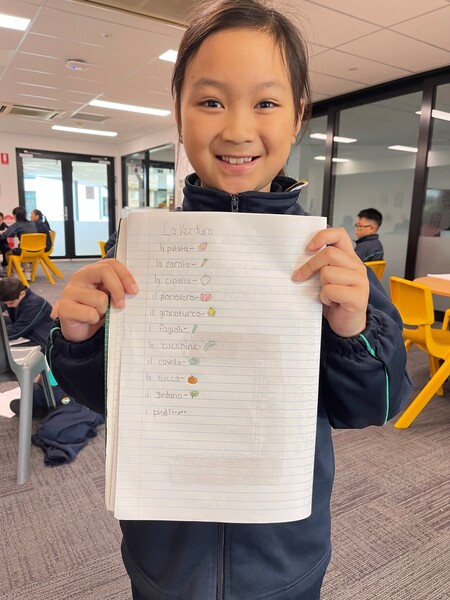 La Verdura
la patata-
la carota-
la cipolla-
il pomodoro-
il granoturco-
i fagioli-
le zucchine-
il cavolo-
la zucca-
il sedano-
i piselli-